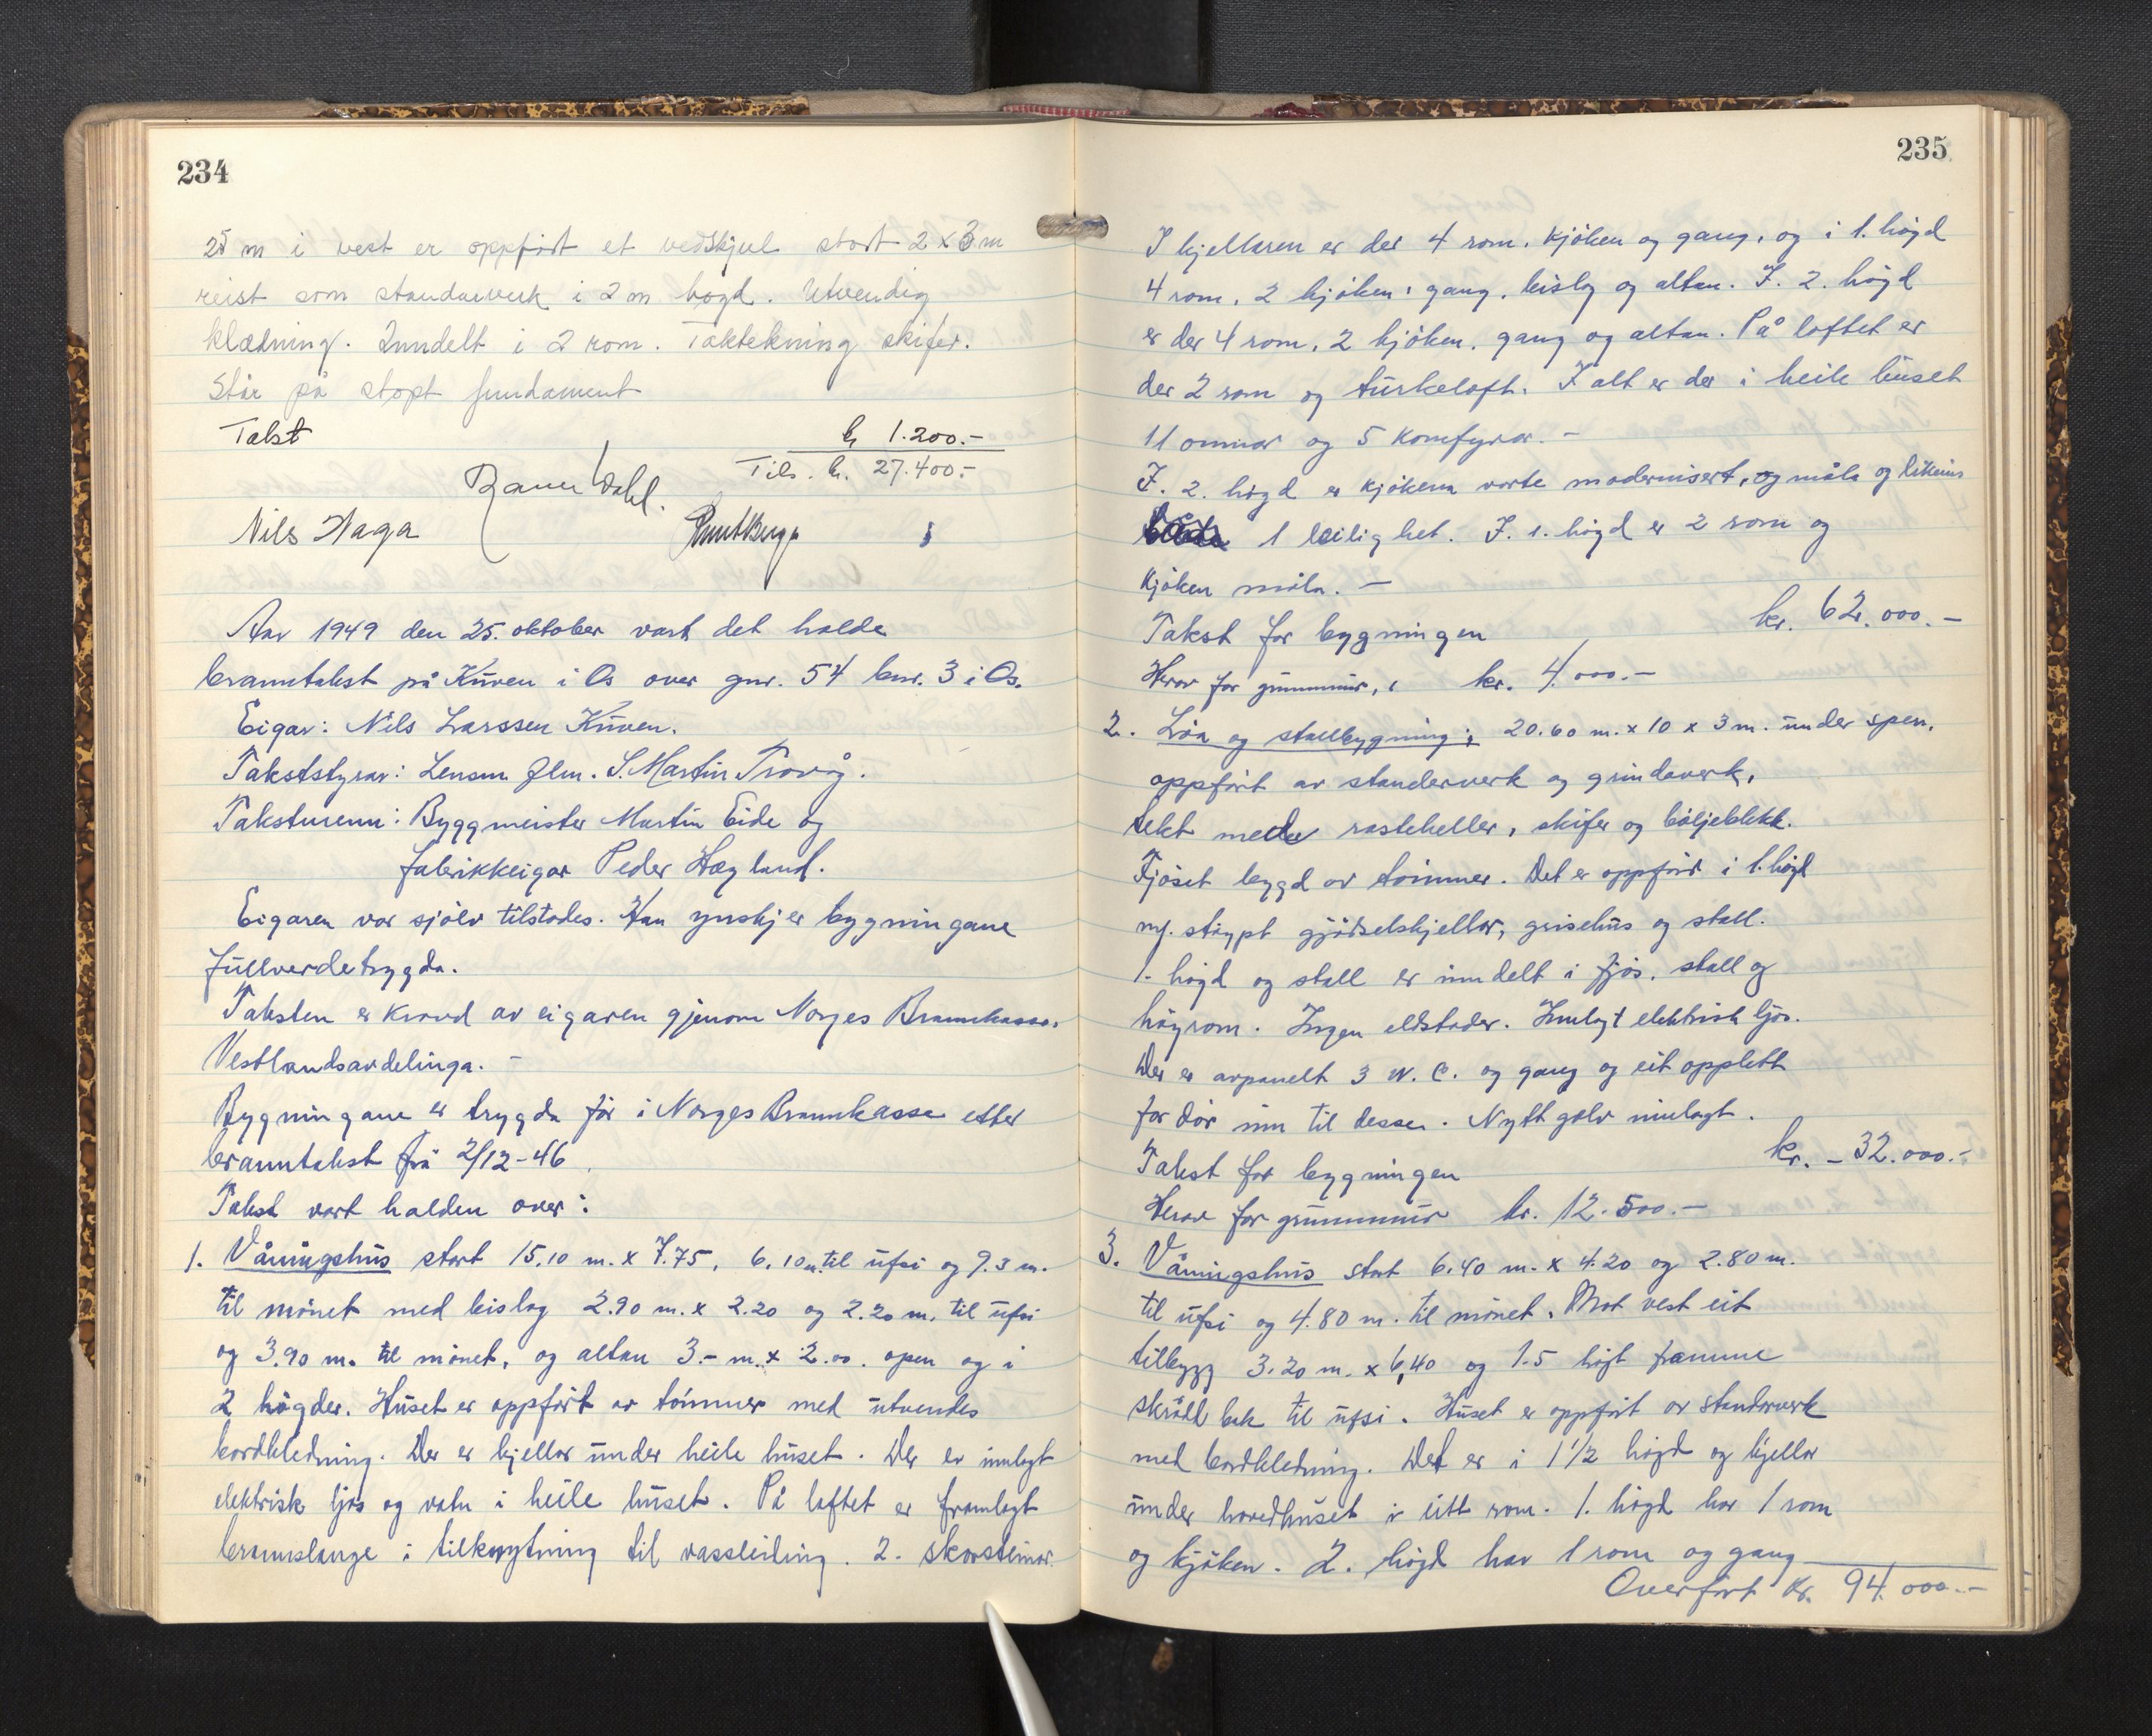 234
25 m i vest er oppfört et vedskjul stort 2 x 3 m
reist som standarverk i 2 m högd. Utvendig
klædning. Inndelt i 2 rom. Taktekning skifer.
Står på stöpt fundament
Takst kr 1.200.-
Tils. kr. 27.400.-
Dahl.
Nils Haga
Aar 1949 den 25. oktober vart det halde
branntakst på Kuven i Os over gnr. 54 bnr. 3 i Os.
Eigar: Nils Larssen Kuven.
Takststyrar: Lensm. flm. S. Martin
Takstmenn: Byggmeister Martin Eide og
fabrikkeigar Peder Hægland.
Eigaren var sjölv tilstades. Han ynskjer bygningane
fullverdetrygda.
Taksten er kravd av eigaren gjenom Norges Brannkasse,
Vestlandsavdelinga. -
Bygningane er trygda för i Norges Brannkasse etter
branntakst frå 2/12-46
Takst vart halden over:
1. Våningshus stort 15.10 m. x 7.75, 6.10 m. til ufsi og 9.3 m.
til mönet med bislag 2.90 m. x 2.20 og 2.20 m. til ufsi
og 3.90 m. til mönet, og altan 3.- m. x 2.00. open og i
2 högder. Huset er oppfört av tömmer med utvendes
bordkledning. Der er kjellar under heile huset. Der er innlagt
elektrisk ljos og vatn i heile huset. På loftet er framlagt
brannslange i tilknytning til vassleidning. 2. skorsteinar.
235
I kjellaren er der 4 rom, kjöken og gang, og i 1. högd
4 rom, 2 kjöken, gang, bislag og altan. I. 2. högd
er der 4 rom, 2 kjöken, gang og altan. På loftet er
der 2 rom og turkeloft. I alt er der i heile huset
11 omnar og 5 komfyrar. -
I. 2. högd er kjökena vorte modernisert, og måla og likeins
1 leilighet. I. 1. högd er 2 rom og
kjöken måla. -
Takst for bygningen kr. 62.000.-
Herav for grunnmur, kr. 4.000.-
2. Löa og stallbygning; 20.60 m. x 10 x 3 m. under spen,
oppfört av standerverk og grindaverk,
tekt med rasteheller, skifer og böljeblekk.
Fjöset bygd av tömmer. Det er oppförd i 1. högd
ny. stöypt gjödselskjellar, grisehus og stall.
1. högd og stall er inndelt i fjös, stall og
höyrom. Ingen eldstader. Innlagt elektrisk ljos.
Der er avpanelt 3 W.C. og gang og eit opplett
for dör inn til desse. Nytt golv innlagt.
Takst for bygningen kr. - 32.000.-
Herav for grunnmur kr. 12.500.-
3. Våningshus stort 6.40 m. x 4.20 og 2.80 m.
til ufsi og 4.80 m. til mönet. Mot vest eit
tilbygg 3.20 m. x 6,40 og 1.5 högt framme
skrådd bak til ufsi. Huset er oppfört av standarverk
med bordkledning. Det er i 1 1/2 högd og kjellar
under hovedhuset i eitt rom. 1. högd har 1 rom
og kjöken. 2. högd har 1 rom og gang
Overfört kr. 94.000.-